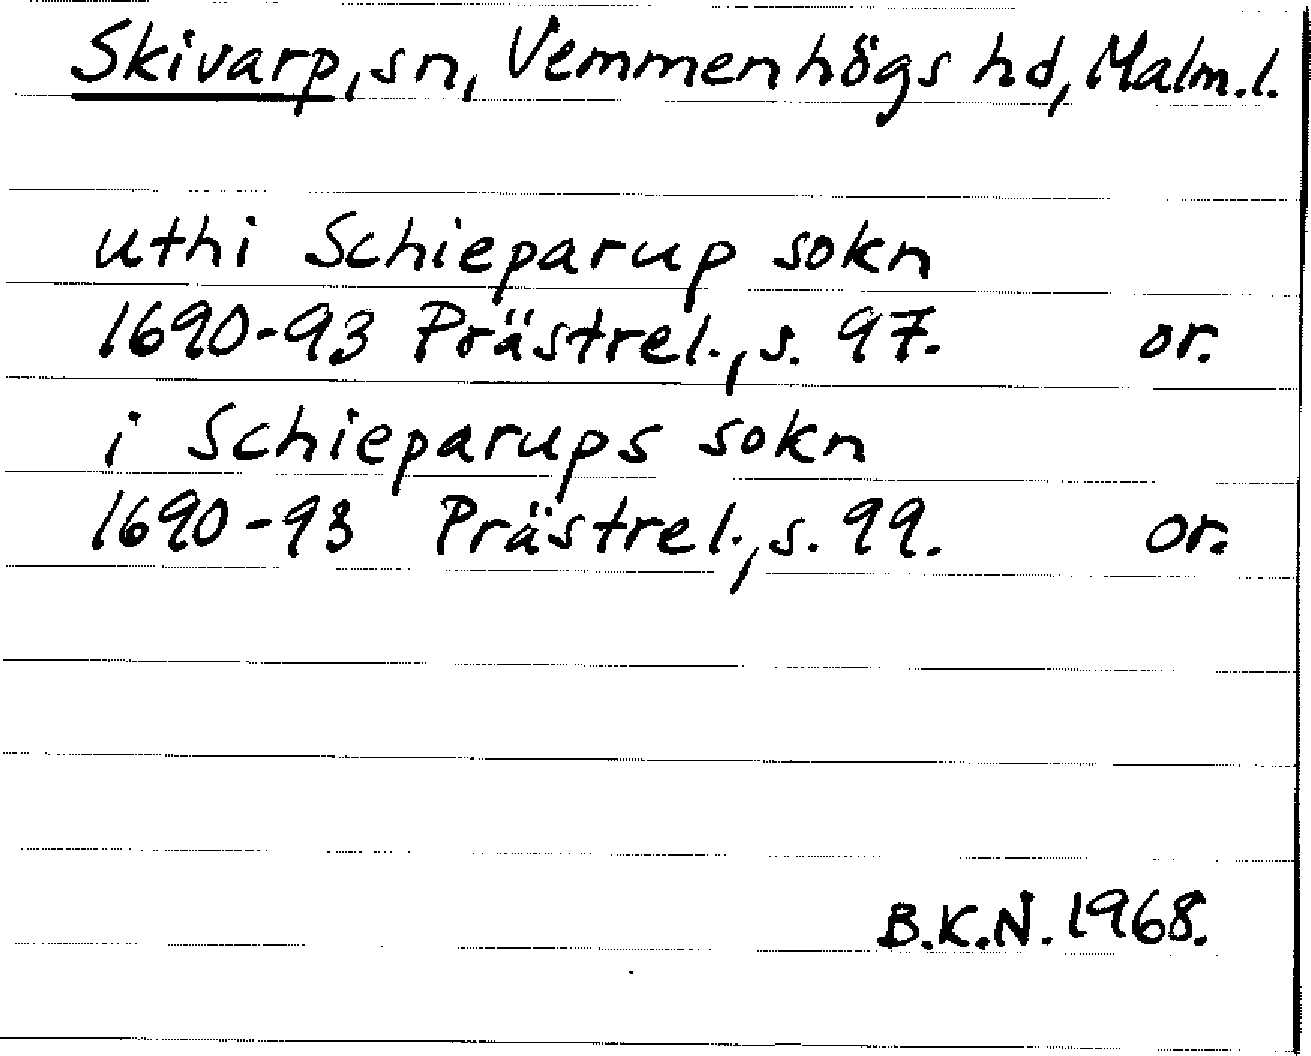 Skivarp, sn, Vemmenhögs hd, Malm.l.
uthi Schieparup sokn
1690-93 Prästrel., s. 97. or.
i Schieparups sokn
1690-93 Prästrel., s. 99. or.
B.K.N. 1968.